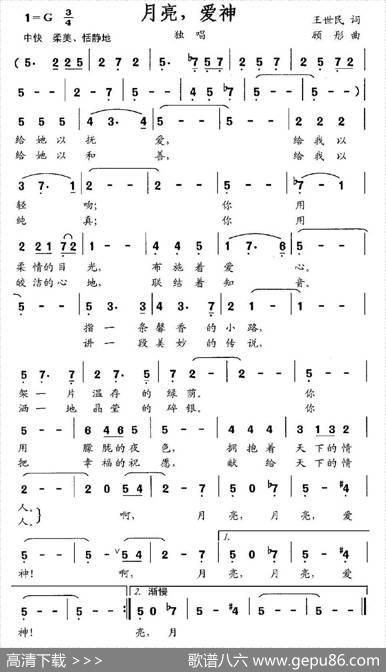 月亮，爱神
1=G 3/4
王世民 词
中快 柔美、恬静地
独唱
顾彤 曲
(5· 225 | 2 7 G | 2 - 7 | 5·♭757 | 2 7 5
5 - - | 5 - - | 2·527 | 5 - - | 5 - -)
5 5 5 | 4 3· 4 | 5 - - | 5 - - | 2 2 2
给她以 抚 爱， 给我以
给她以 和 善， 给我以
3 7· 1 | 2 - - | 2 - - | 5 - - | ♭7 - 1
轻 吻； 你 用
纯 真； 你 用
2 221 72 | 1 - - | 4 4 5 | 1 7· 6
柔情的目 光， 布施着 爱 心。
皎洁的心 地， 联结着 知 音。
5 - - | 5 3· 3 | 4 5 3· 4 | 2 1 - | 1 - -
指一条馨香的小路，
讲一段美妙的传说，
5 7· 7 | 5 7· 3 | 2 - - | 2 - - | 5 - -
架一片温存的绿荫。 你
洒一地晶莹的碎银。 你
2 - 5 | 6 46 5 | 2 - - | 4 4 5 | 3 13 2
用 朦胧的夜 色， 拥抱着 天下的情
把 幸福的祝 愿， 献给 天下的情
2 - - | 2 0 54 | 2 - 7 | 5 0 ♭7 | 5 - ♯4
人。 啊， 月 亮，月 亮，爱
人。
5 - - | 5 - 54 | 2 - 7 | 5 0 ♭7 | 5 - ♯4
1.
神！ 啊， 月 亮，月 亮，爱
5 - - | 5 - - :‖ 5 0 ♭7 | 5 - ♯4 | 5 - - | 5 - - ‖
2. 渐慢
神！ 亮，月
高清下载 >>> 歌谱八六 www.gepu86.com